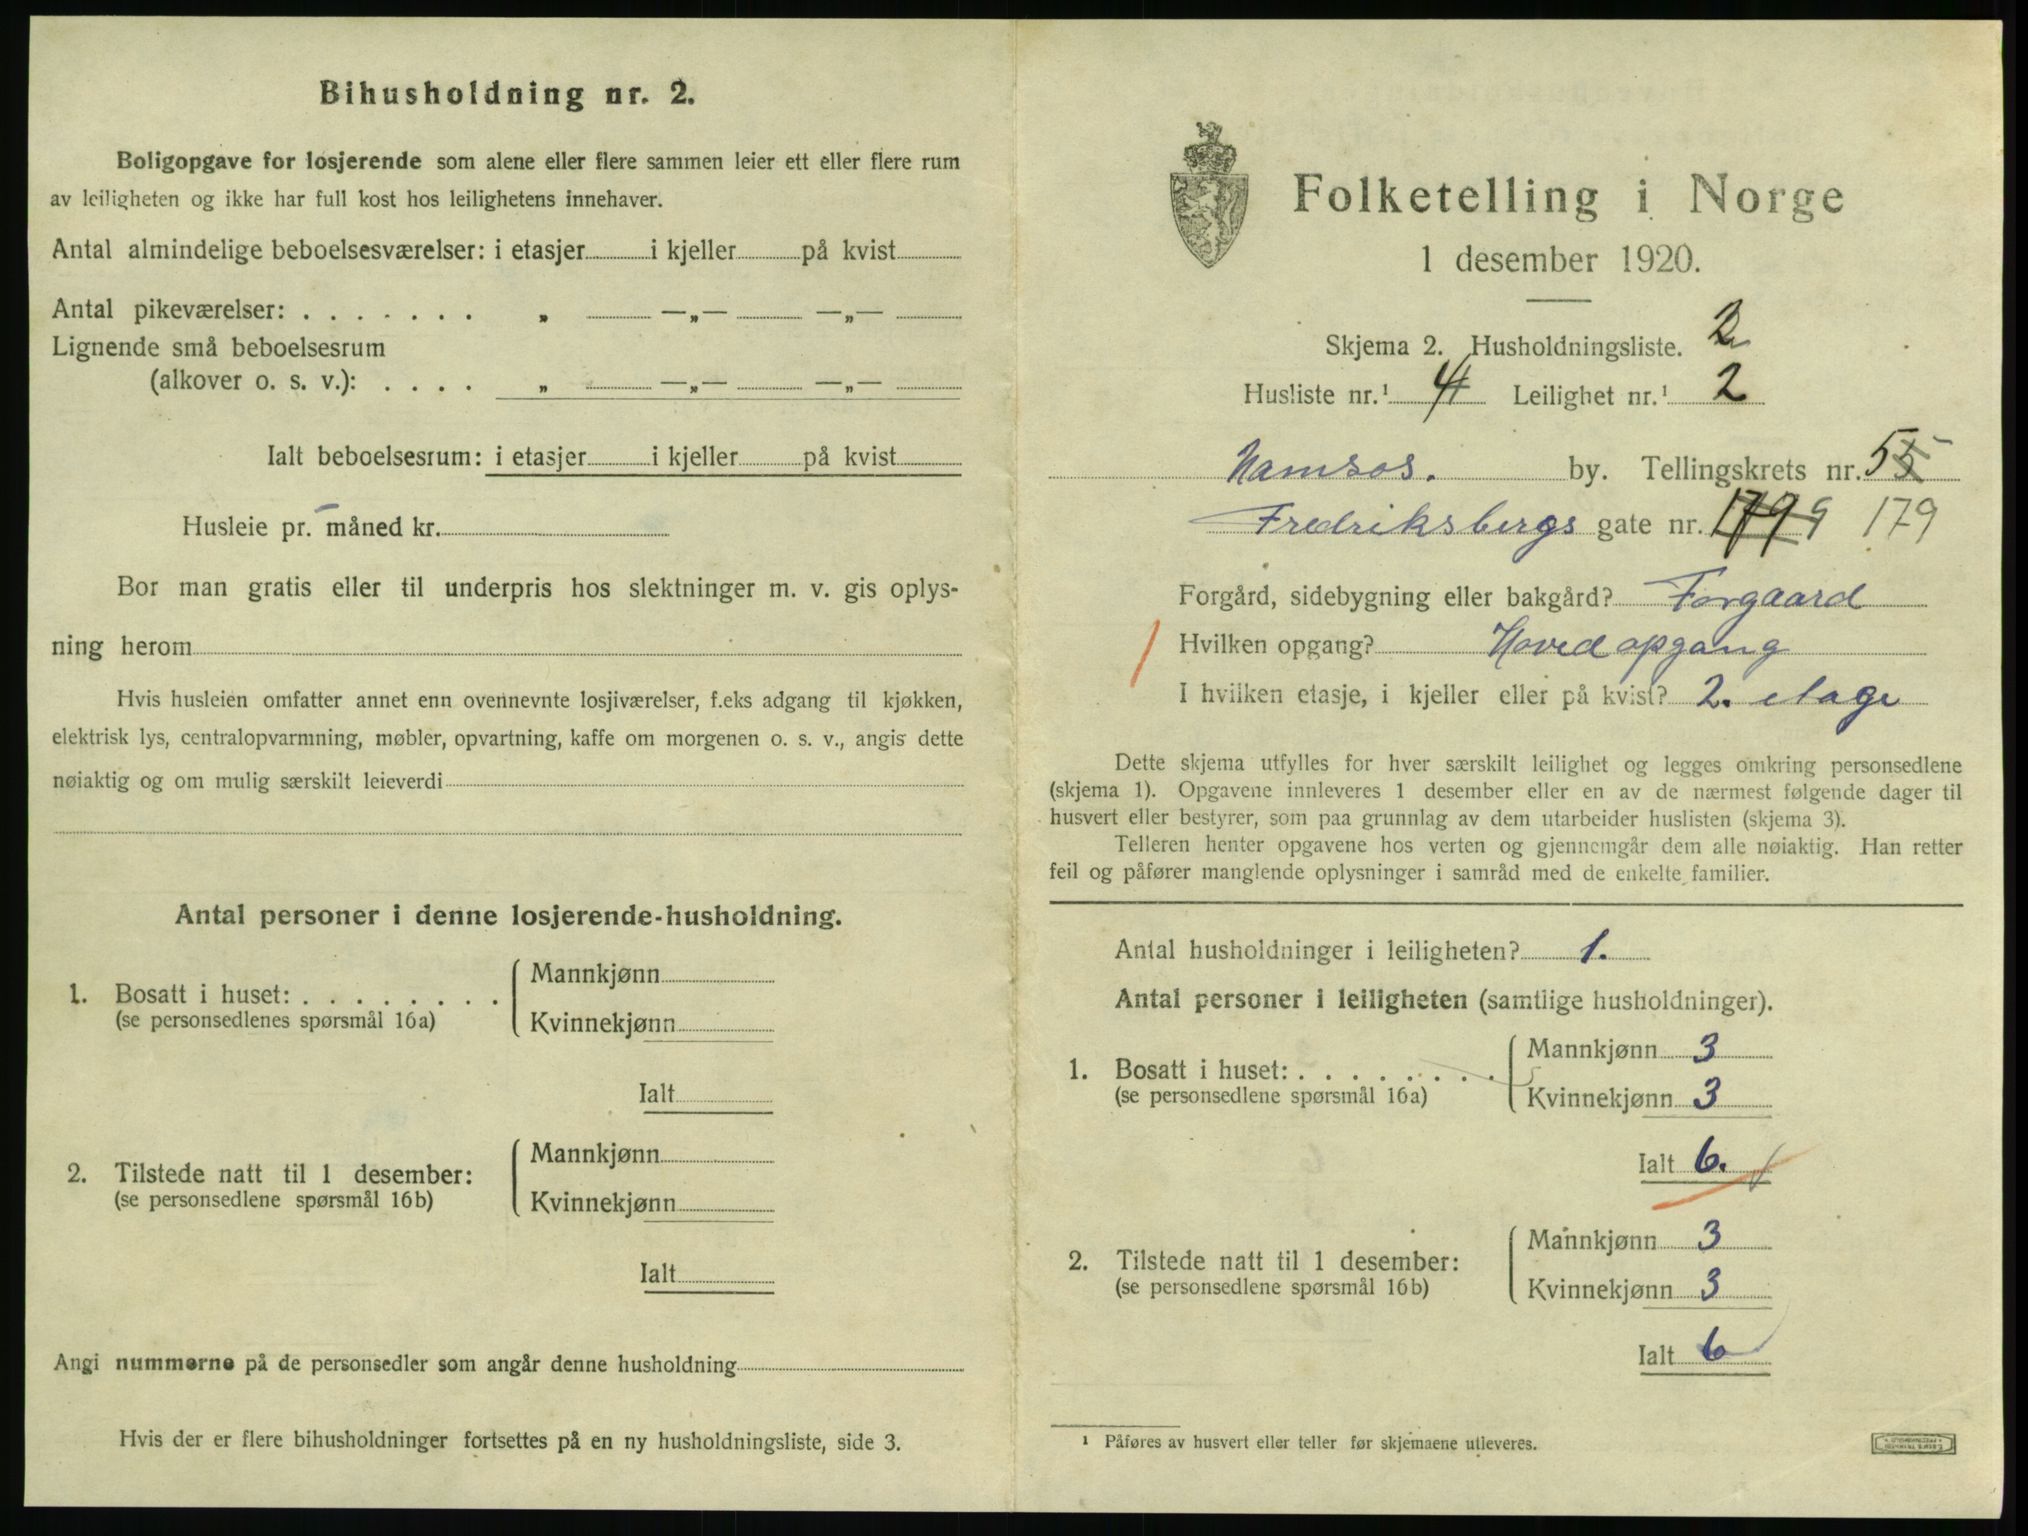 Bihusholdning nr. 2.
Boligopgave for losjerende som alene eller flere sammen leier ett eller flere rum
av leiligheten og ikke har full kost hos leilighetens innehaver.
Antal almindelige beboelsesværelser: i etasjer i kjeller på kvist
Antal pikeværelser: . . . . . . . „ —„— —„—
Lignende små beboelsesrum
(alkover o. s. v.): . . . . „ —„— —„—
Ialt beboelsesrum: i etasjer i kjeller på kvist
Husleie pr. måned kr.
Bor man gratis eller til underpris hos slektninger m. v. gis oplys-
ning herom
Hvis husleien omfatter annet enn ovennevnte losjiværelser, f.eks adgang til kjøkken,
elektrisk lys, centralopvarmning, møbler, opvartning, kaffe om morgenen o. s. v., angis dette
nøiaktig og om mulig særskilt leieverdi
Antal personer i denne losjerende-husholdning.
1. Bosatt i huset: . . . . . . . . Mannkjønn
(se personsedlenes spørsmål 16a) Kvinnekjønn
Ialt
2. Tilstede natt til 1 desember: Mannkjønn
(se personsedlene spørsmål 16b) Kvinnekjønn
Ialt
Angi nummerne på de personsedler som angår denne husholdning
Hvis der er flere bihusholdninger fortsettes på en ny husholdningsliste, side 3.
Folketelling i Norge
1 desember 1920.
Skjema 2. Husholdningsliste. 2
Husliste nr.¹ 4 Leilighet nr.¹ 2
Namsos. by. Tellingskrets nr. 5 5
Fredriksbergs gate nr. 179 9 179
Forgård, sidebygning eller bakgård? Forgaard
Hvilken opgang? Hovedopgang
I hvilken etasje, i kjeller eller på kvist? 2. etage
Dette skjema utfylles for hver særskilt leilighet og legges omkring personsedlene
(skjema 1). Opgavene innleveres 1 desember eller en av de nærmest følgende dager til
husvert eller bestyrer, som paa grunnlag av dem utarbeider huslisten (skjema 3).
Telleren henter opgavene hos verten og gjennemgår dem alle nøiaktig. Han retter
feil og påfører manglende oplysninger i samråd med de enkelte familier.
Antal husholdninger i leiligheten? 1.
Antal personer i leiligheten (samtlige husholdninger).
1. Bosatt i huset: . . . . . . . . Mannkjønn 3
(se personsedlene spørsmål 16a) Kvinnekjønn 3
Ialt 6.
2. Tilstede natt til 1 desember: Mannkjønn 3
(se personsedlene spørsmål 16b) Kvinnekjønn 3
Ialt 6
¹ Påføres av husvert eller teller før skjemaene utleveres.